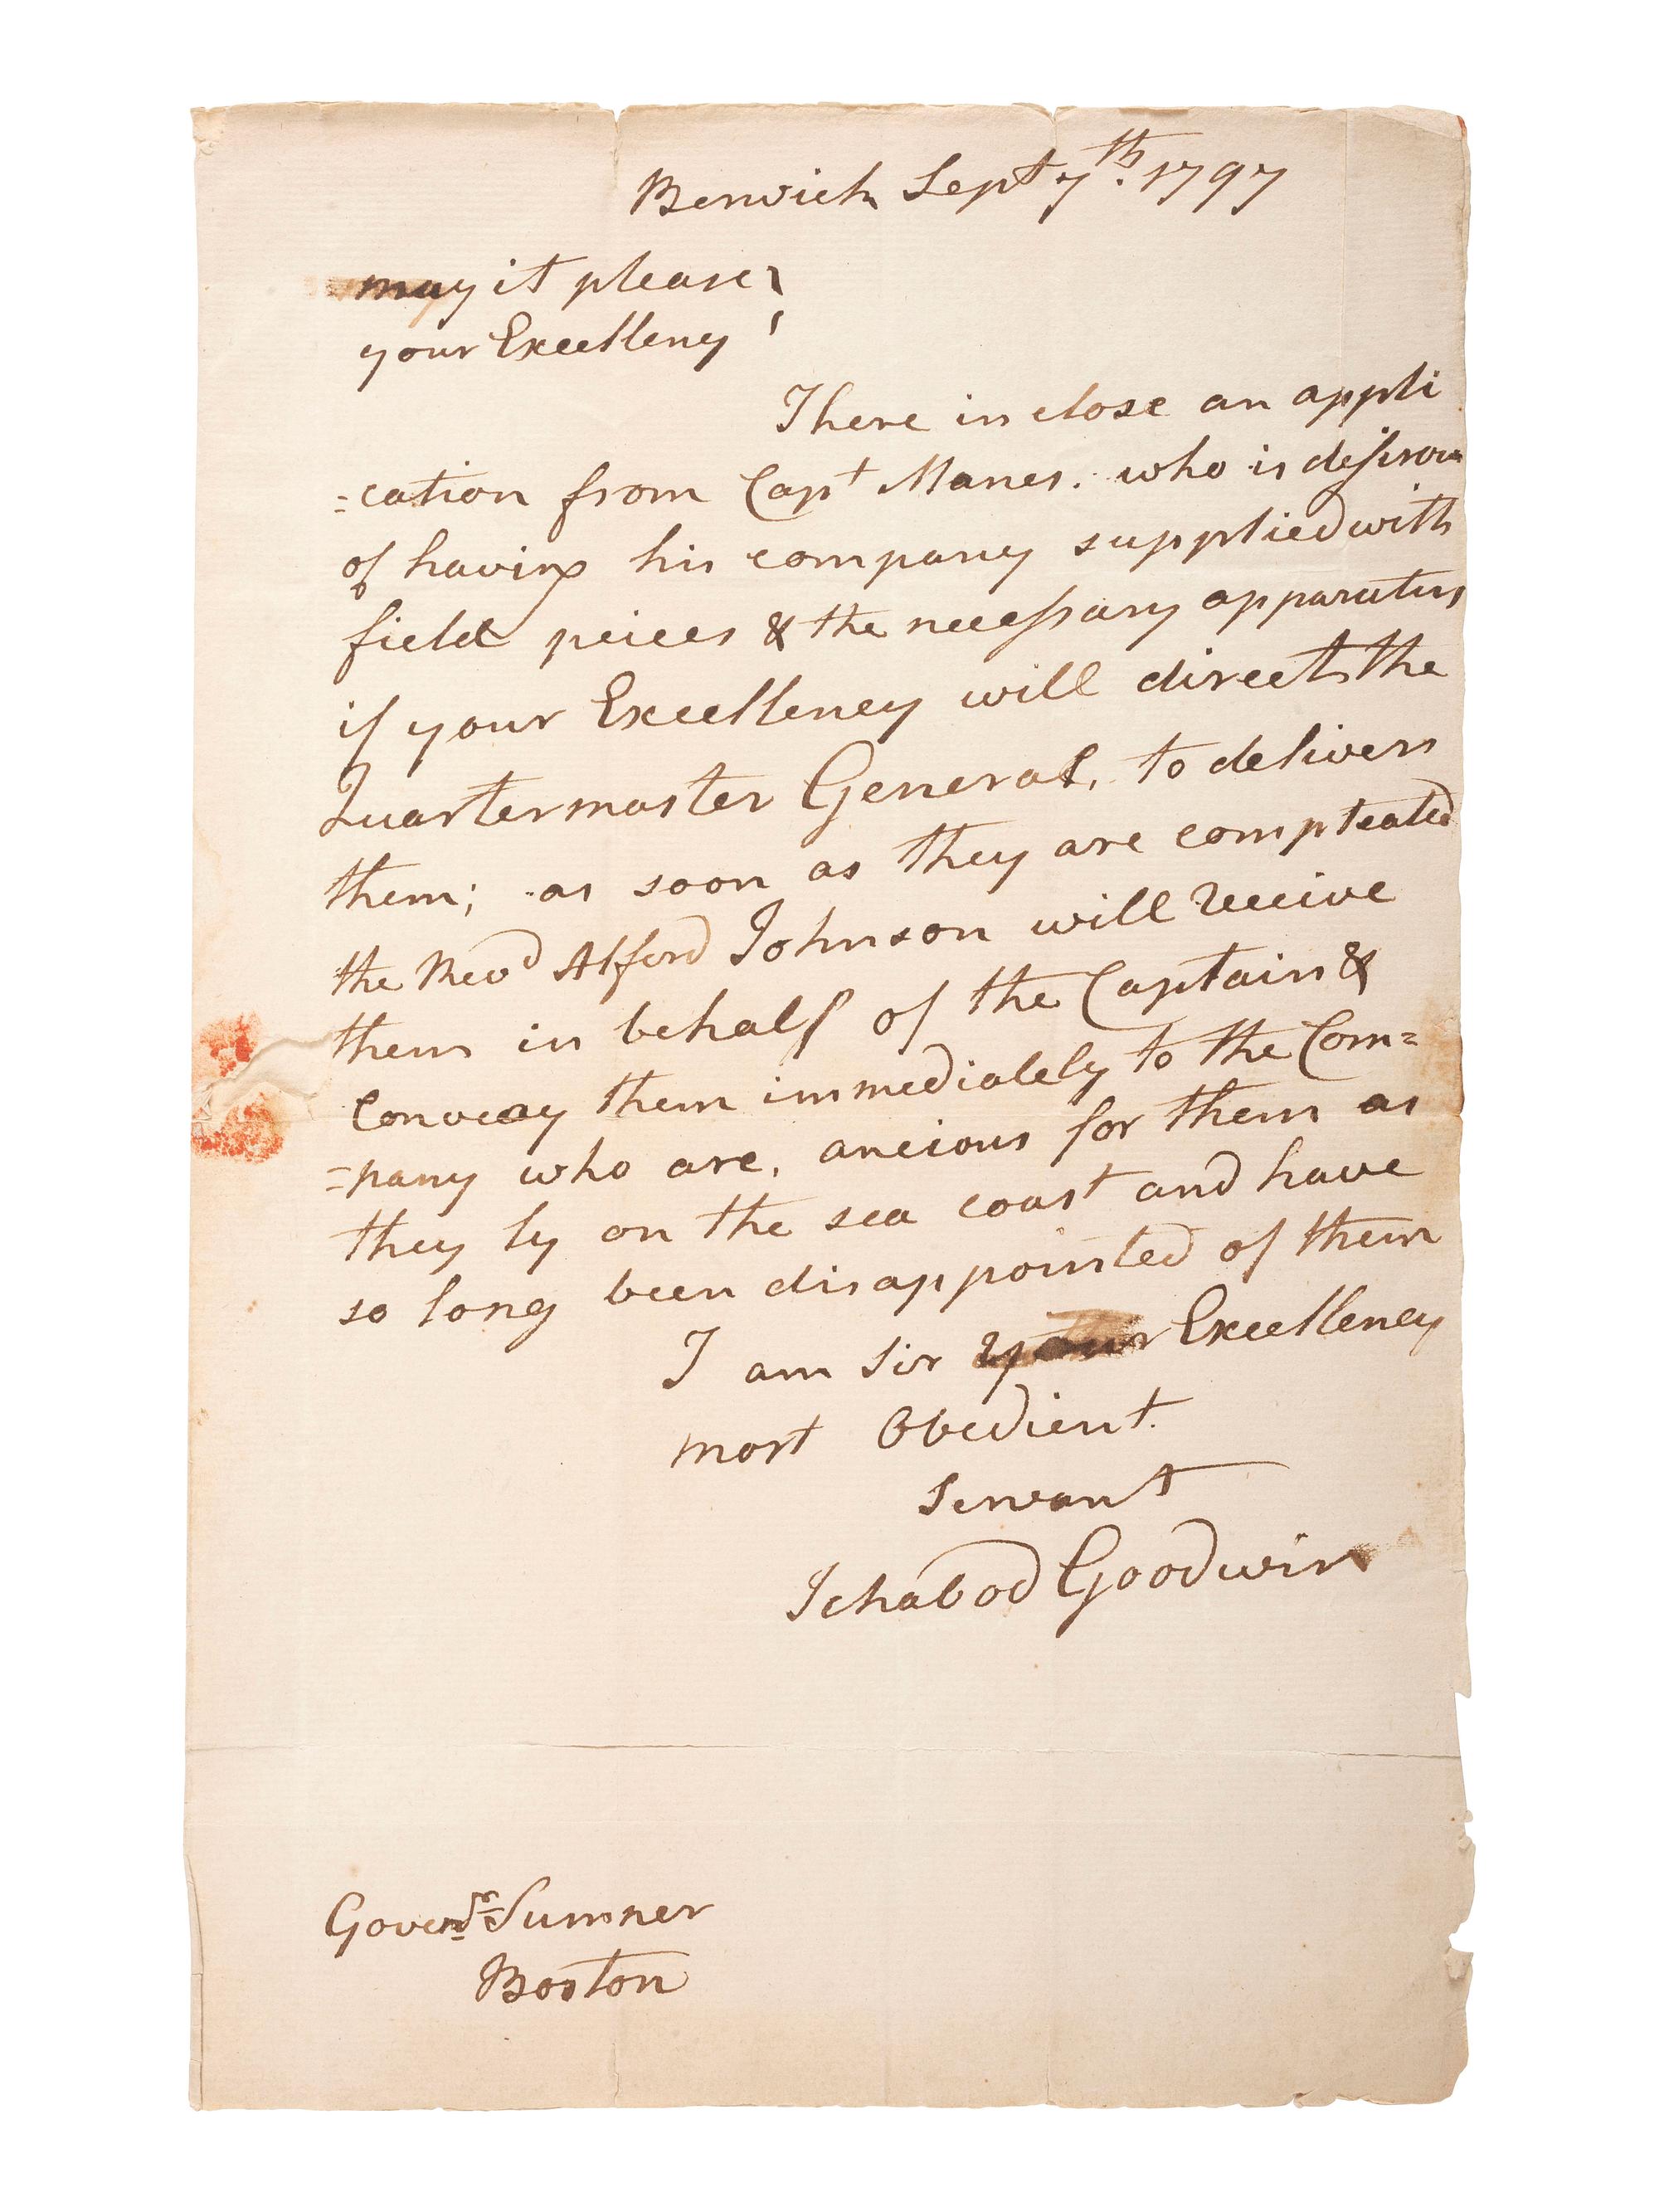 Berwick Sept 7th. 1797
may it please
your Excelleny
There in close an appli
=cation from Capt Manes. who is dessirous
of having his company supplied with
field peices & the necessary apparatus
if your Excellency will direct the
Quartermaster General, to deliver
them; as soon as they are compleated
the Revd Alford Johnson will receive
them in behalf of the Captain &
Convay them immediately to the Com=
=pany who are, ancious for them as
they ly on the sea coast and have
so long been disappointed of them
I am Sir your Excellency
most Obedient.
Servant
Ichabod Goodwin
Govenr Sumner
Boston